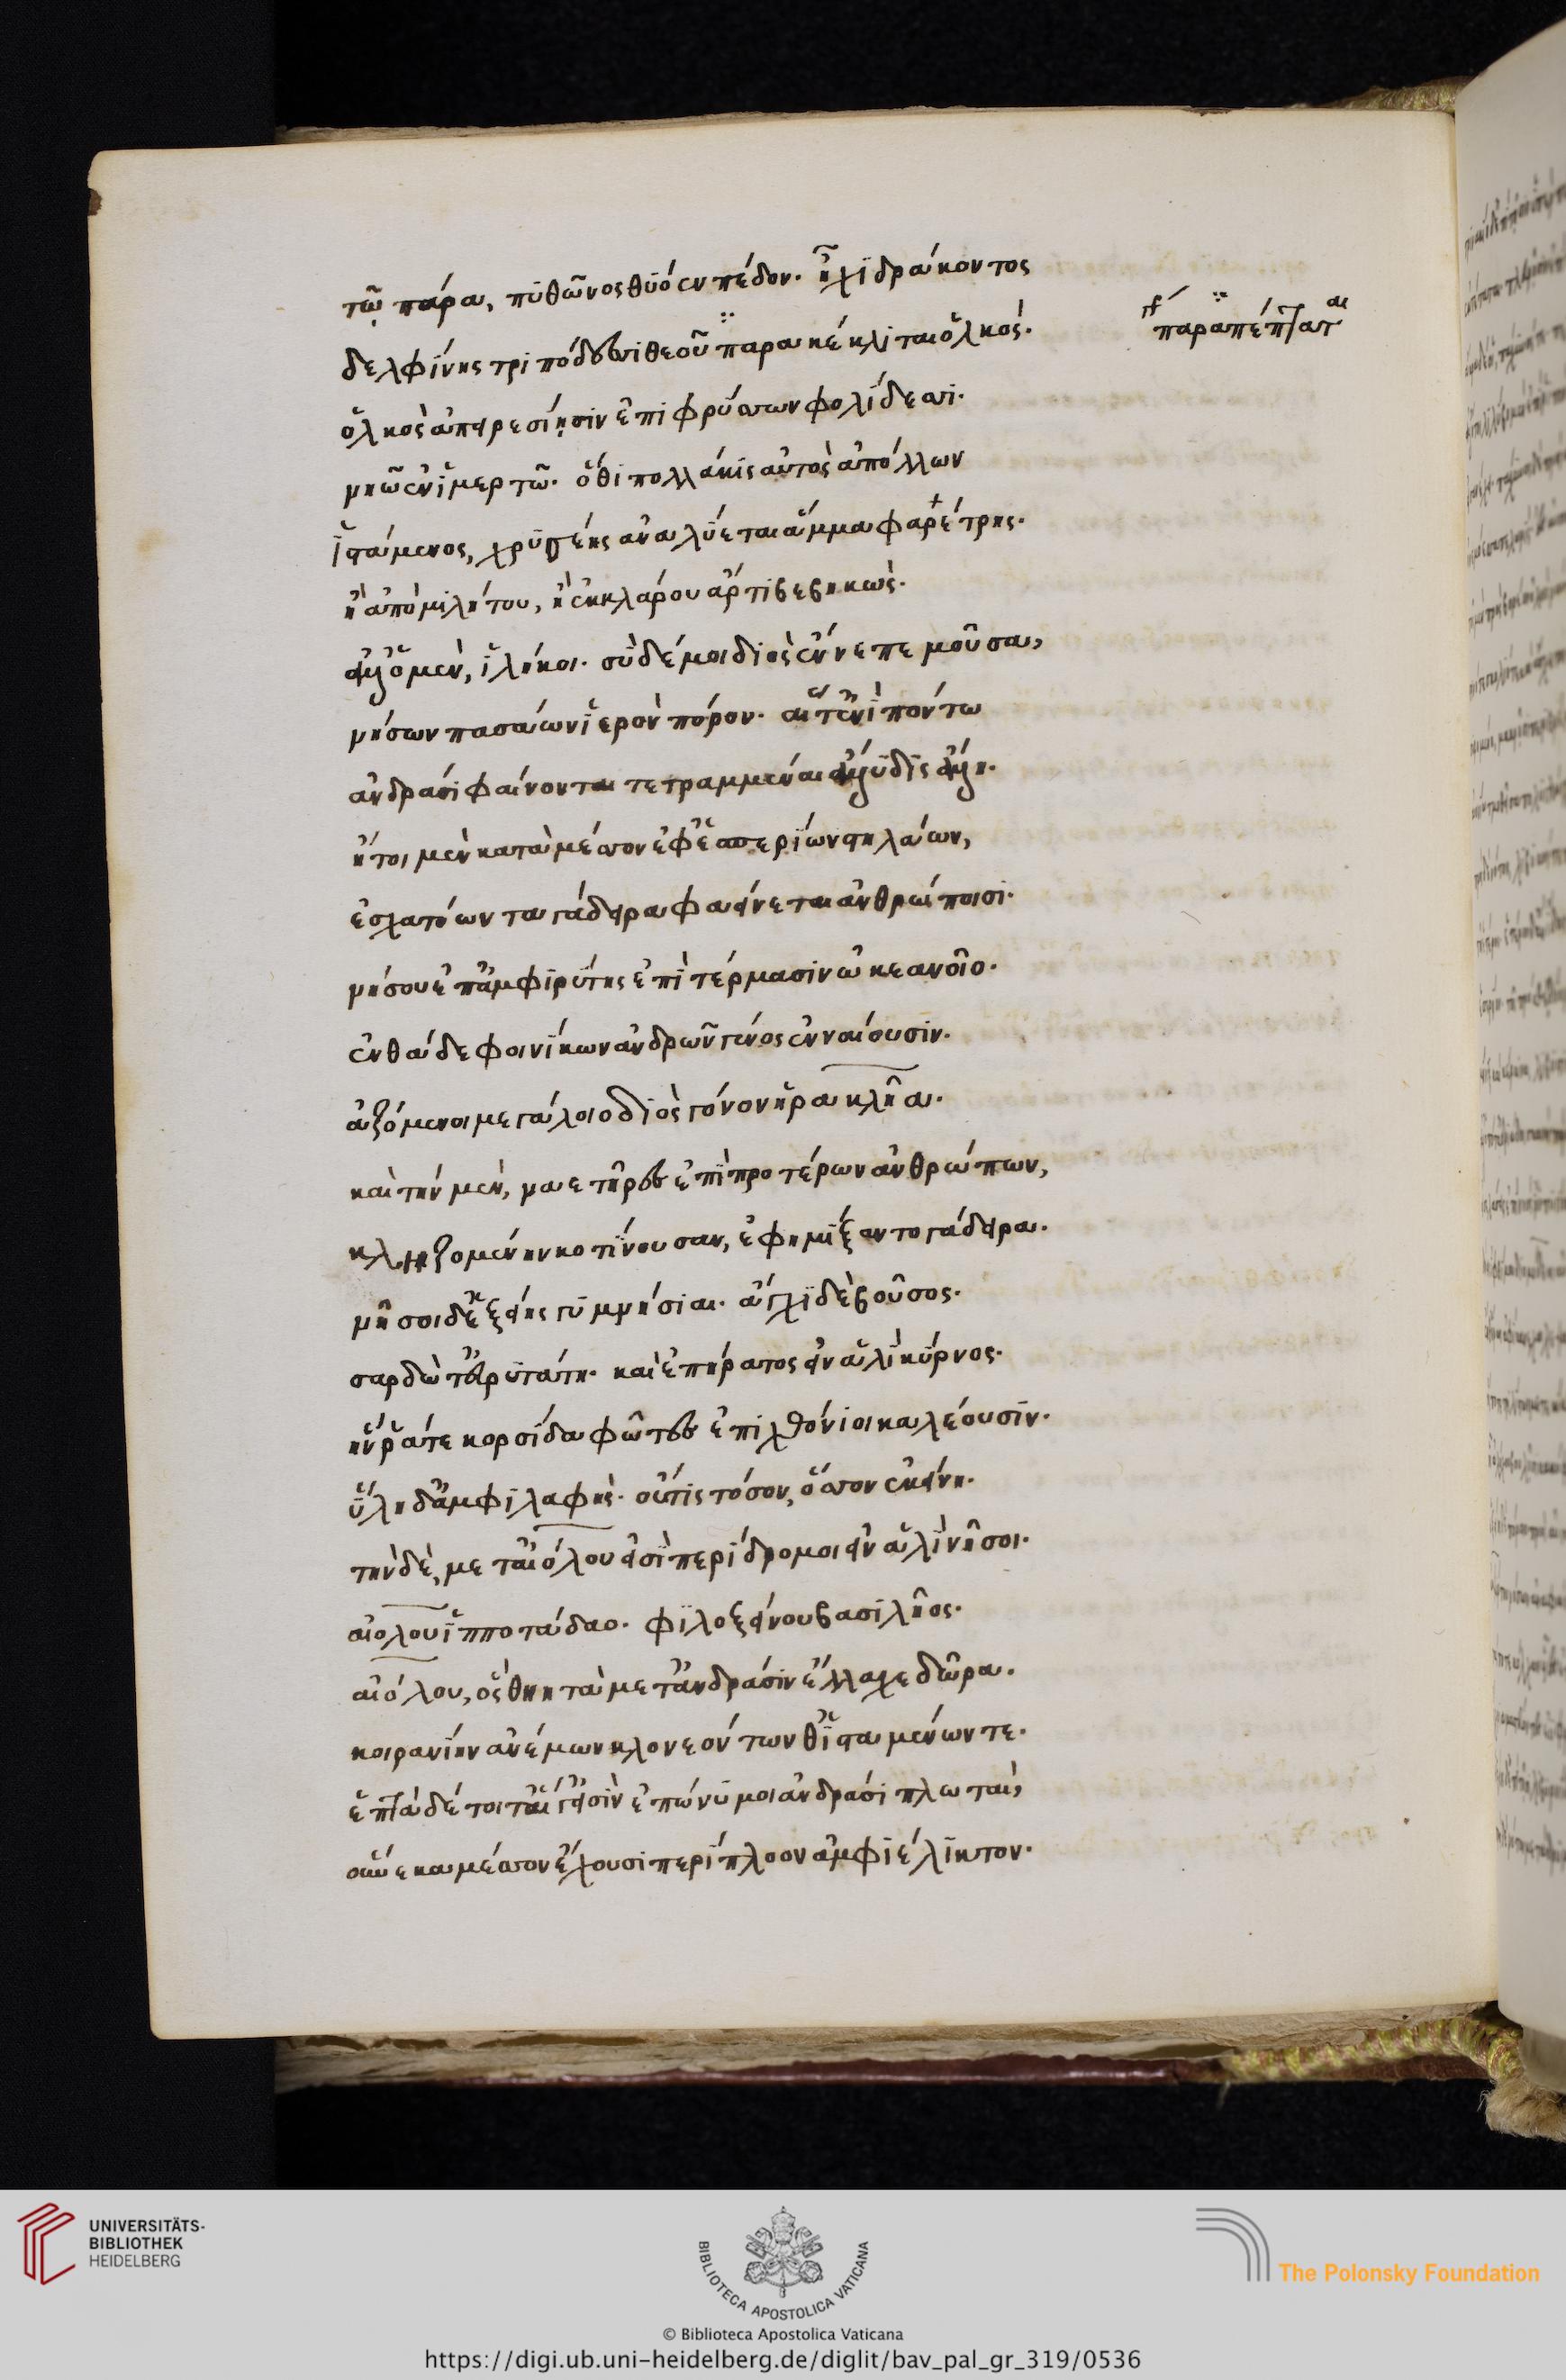 τῷ πάρα, πυθῶνος θυόεν πέδον. ἧχι δράκοντος
δελφίνης τριπόδεσσι θεοῦ παρακέκλιται ὁλκός.
γρ παραπέπταται
ὁλκὸς ἀπειρεσίῃσιν ἐπιφρύσσων φολίδεσσι.
νηῷ ἐν ἱμερτῷ. ὅθι πολλάκις αὐτὸς ἀπόλλων
ἱστάμενος, χρυσέης ἀναλύεται ἅμμα φαρέτρης.
ἢ ἀπὸ μιλήτου, ἢ ἐκ κλάρου ἄρτι βεβηκώς.
ἀλλ' ὁ μὲν, ἱλήκοι. σὺ δέ μοι διὸς ἔννεπε μοῦσα,
νήσων πασάων ἱερὸν πόρον. αἵ τ' ἐνὶ πόντω
ἀνδράσι φαίνονται τετραμμέναι ἄλλυδις ἄλλη.
ἤτοι μὲν κατὰ μέσσον ἐφ' ἑσπερίων στηλάων,
ἐσχατόωντα γάδειρα φαείνεται ἀνθρώποισι.
νήσου ἐπ' ἀμφιρύτης ἐπὶ τέρμασιν ὠκεανοῖο.
ἐνθάδε φοινίκων ἀνδρῶν γένος ἐνναίουσιν.
ἁζόμενοι μεγάλοιο διὸς γόνον ἡρακλῆα.
καὶ τὴν μὲν, ναετῆρες ἐπὶ προτέρων ἀνθρώπων,
κληϊζομένην κοτίνουσαν, ἐφημίξαντο γάδειρα.
νῆσοι δ' ἑξείης γυμνήσιαι. ἄγχι δὲ βοῦσος.
σαρδώ τ' εὐρυτάτη. καὶ ἐπήρατος εἰν ἁλὶ κύρνος.
ἥν ῥά τε κορσίδα φῶτες ἐπιχθόνιοι καλέουσιν.
ὕλη δ' ἀμφιλαφὴς. οὔτις τόσον, ὅσσον ἐκείνη.
τὴν δὲ, μετ' αἰόλου εἰσὶ περίδρομοι εἰν ἁλὶ νῆσοι.
αἰόλου ἱπποτάδαο. φιλοξείνου βασιλῆος.
αἰόλου, ὃς θηητὰ μετ' ἀνδράσιν ἔλλαχε δῶρα.
κοιρανίην ἀνέμων κλονεόντων θ' ἱσταμένων τε.
ἑπτὰ δέ τοι ταί γ' εἰσὶν ἐπώνυμοι ἀνδράσι πλωταὶ,
οὕνεκα μέσσον ἔχουσι περίπλοον ἀμφιέλικτον.
UNIVERSITÄTS-
BIBLIOTHEK
HEIDELBERG
BIBLIOTECA APOSTOLICA VATICANA
The Polonsky Foundation
© Biblioteca Apostolica Vaticana
https://digi.ub.uni-heidelberg.de/diglit/bav_pal_gr_319/0536